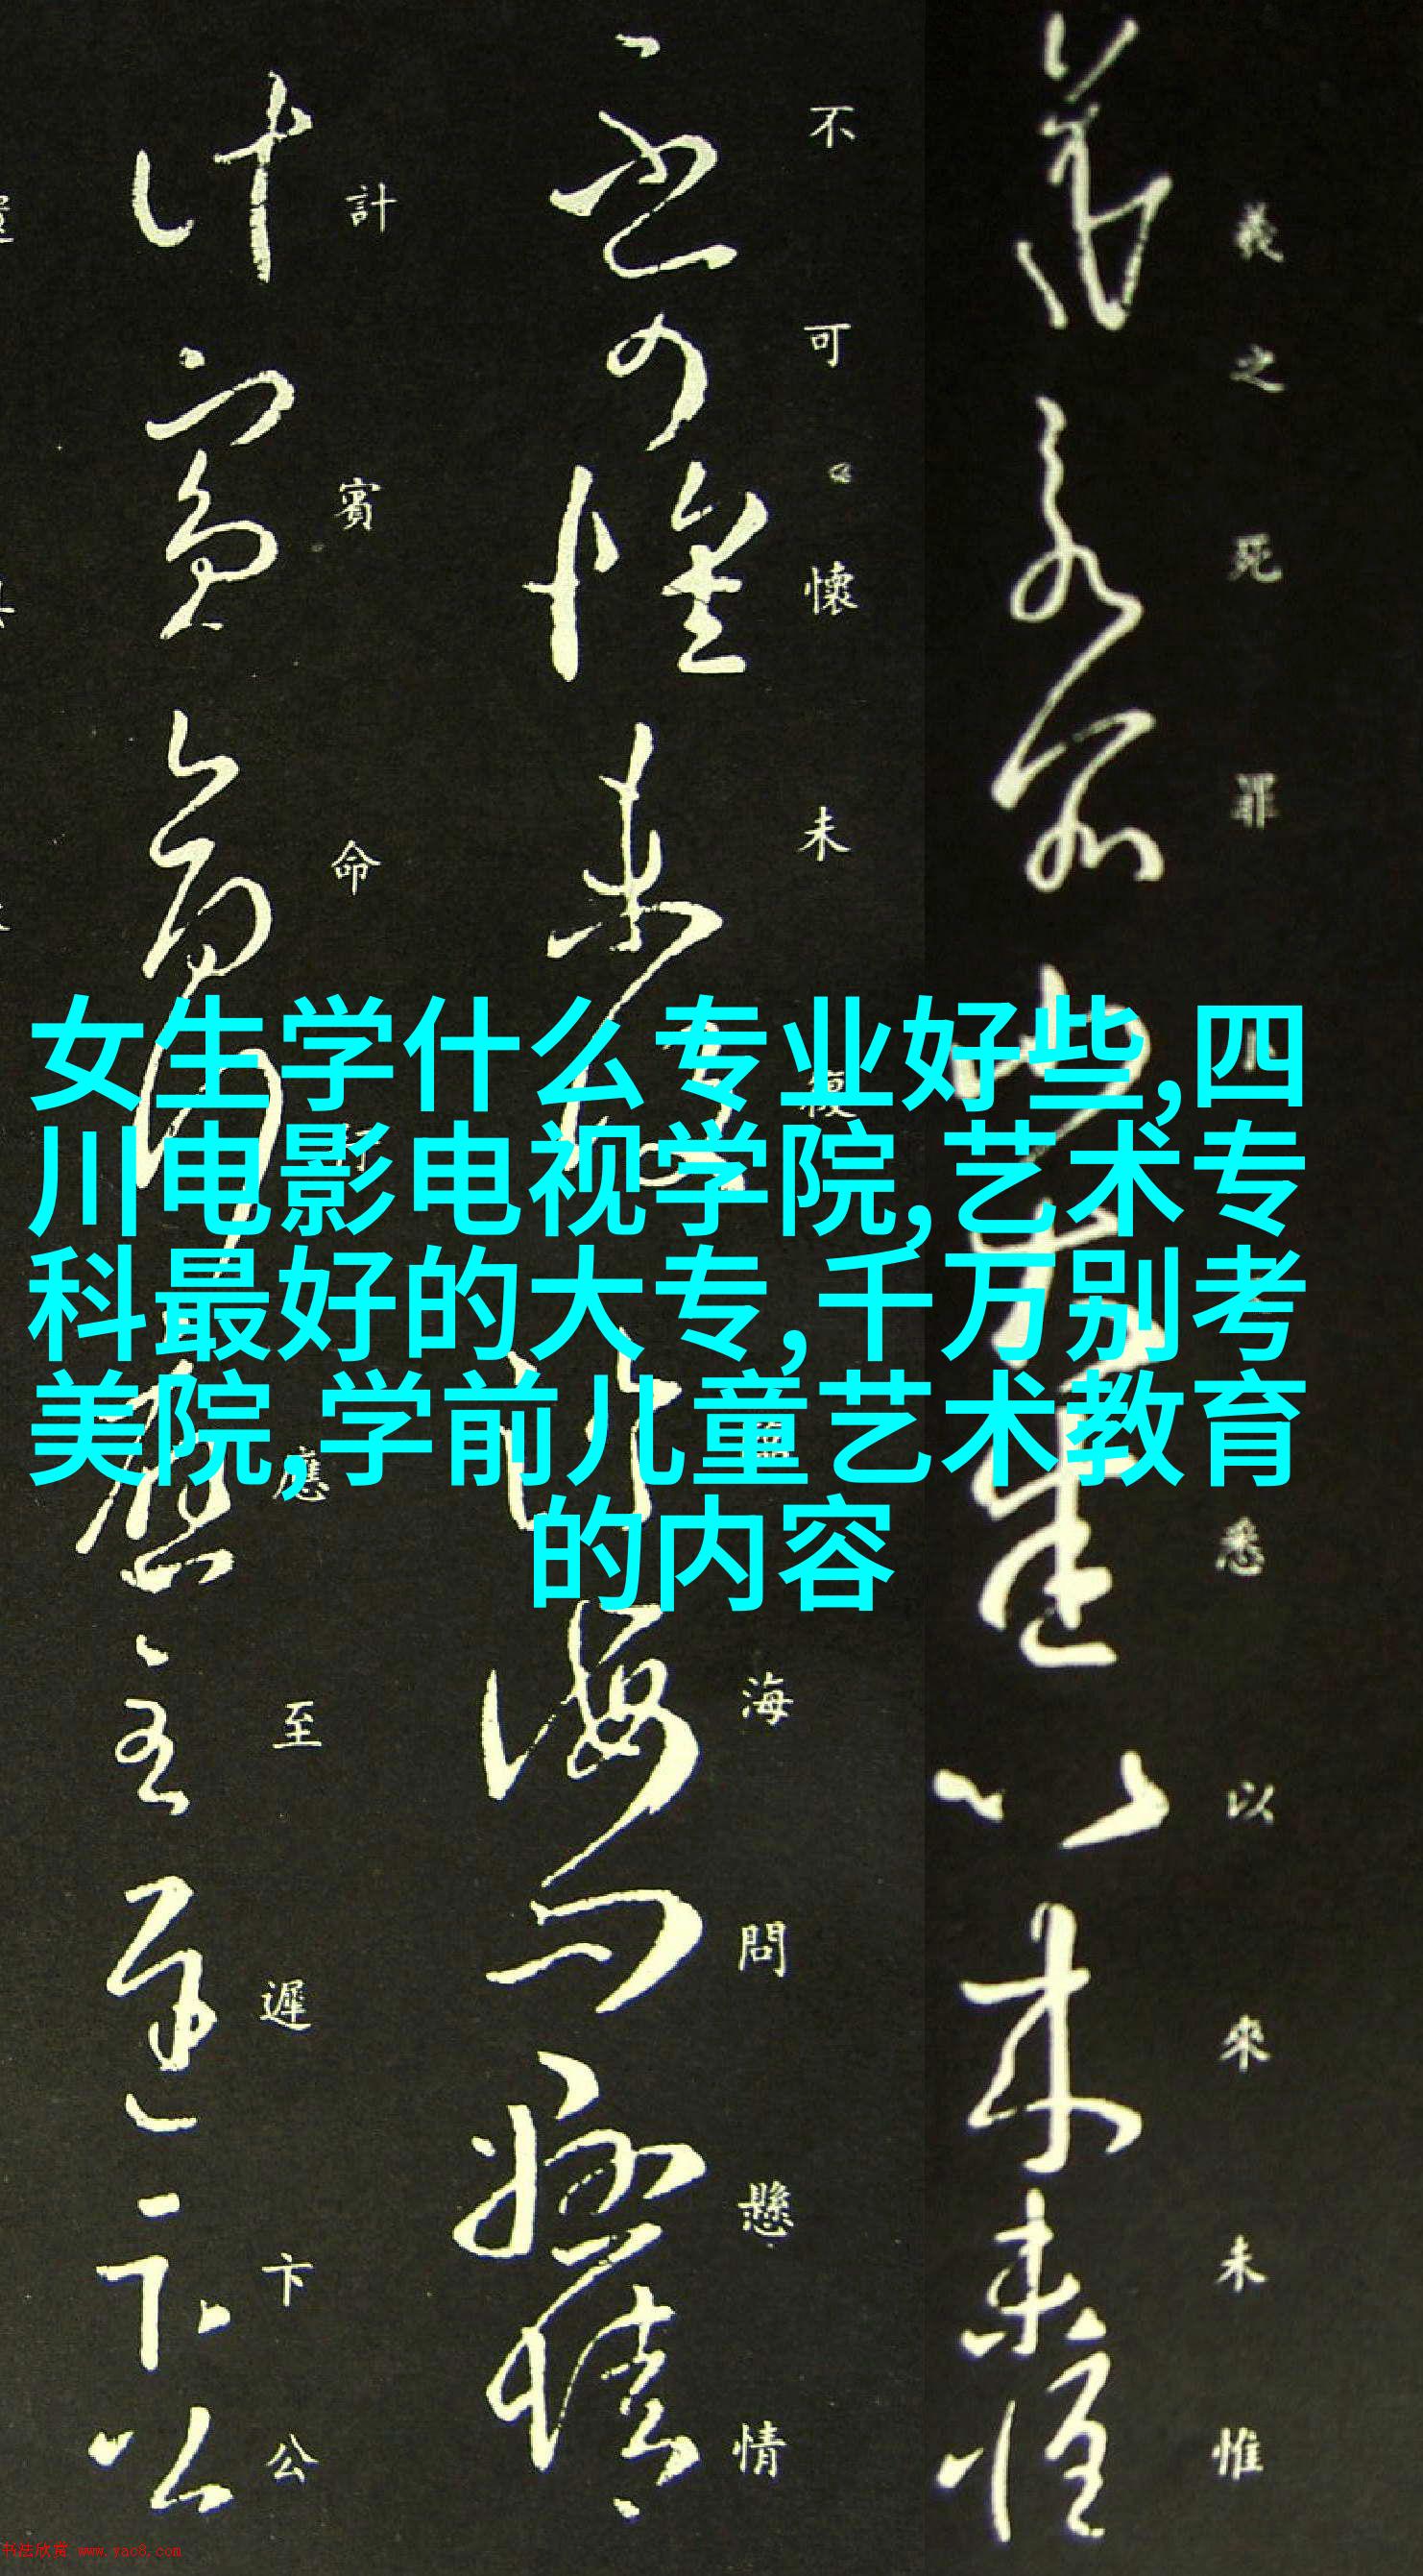 女生学什么专业好些,四
川电影电视学院,艺术专
科最好的大专,千万别考
美院,学前儿童艺术教育
的内容
羲之死罪
悉以來未惟
不可懷未復
海問懸情
計賓命
應至遲卞公
书法欣赏 www.yac8.com